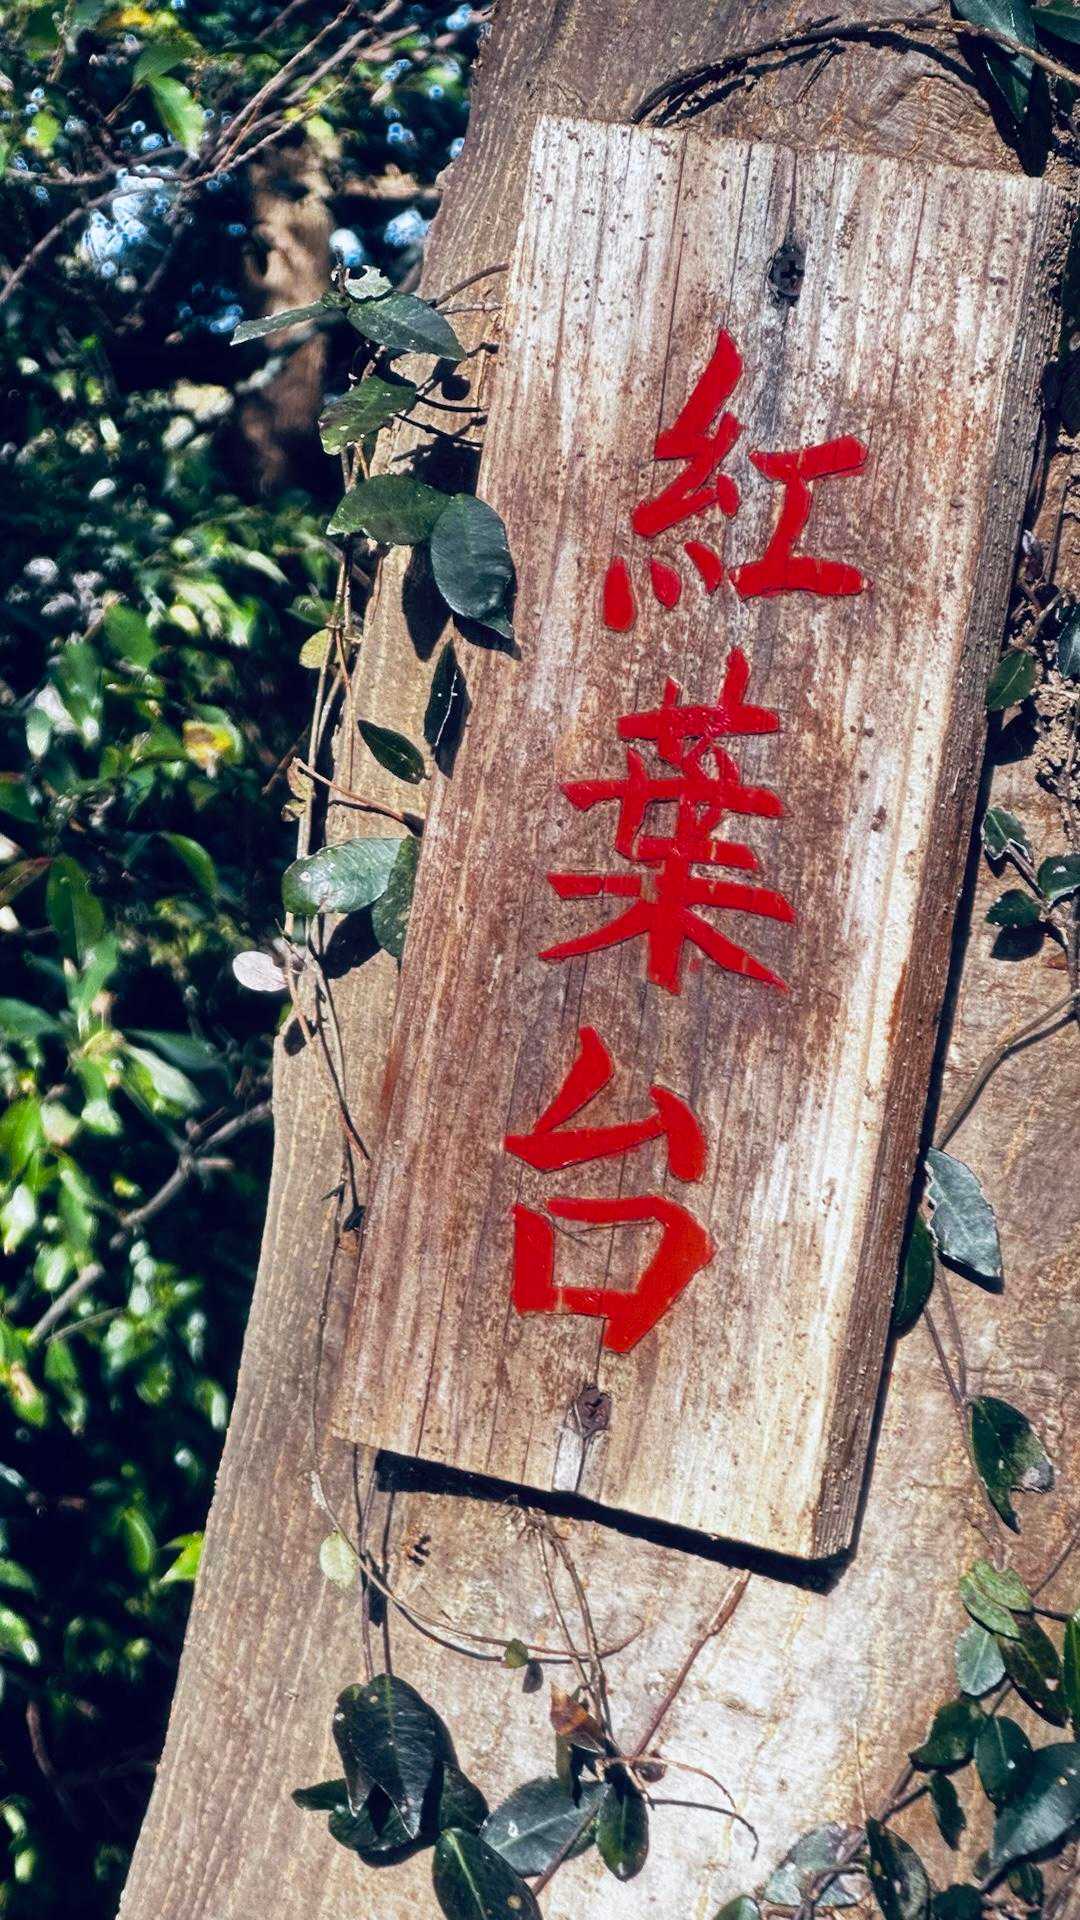 紅葉台